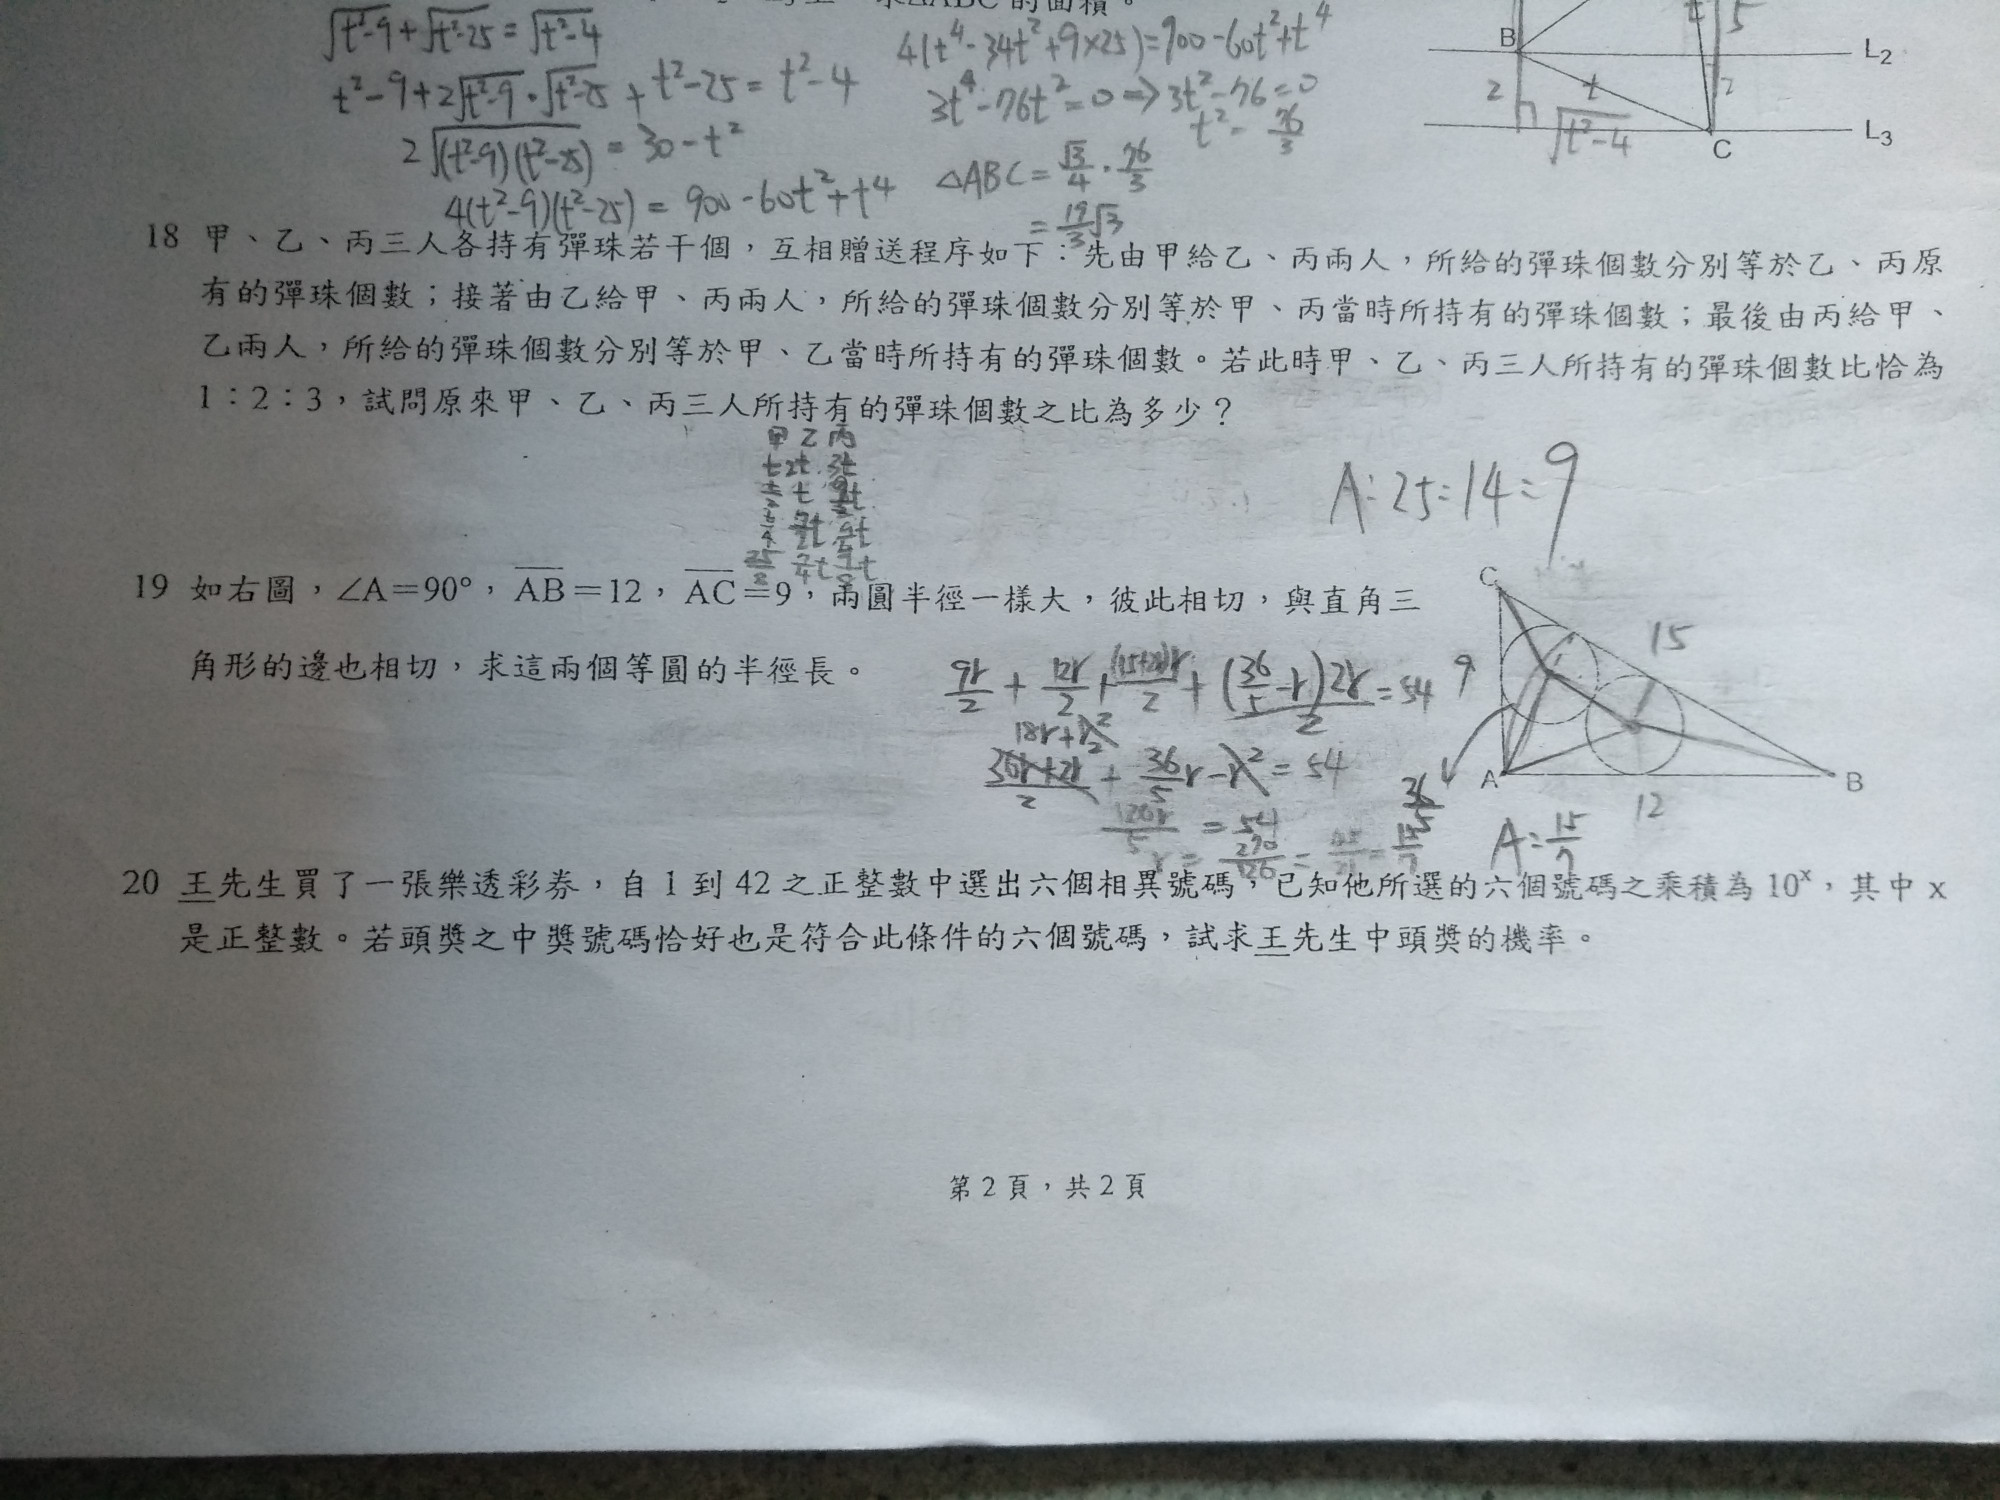 求△ABC 的面積。
√t²-9 + √t²-25 = √t²-4
t²-9+2√t²-9·√t²-25 + t²-25 = t²-4
2√(t²-9)(t²-25) = 30-t²
4(t²-9)(t²-25) = 900-60t²+t4
4(t⁴-34t²+9×25)=900-60t²+t⁴
3t⁴-76t²=0 => 3t²-76=0
t²= 76/3
△ABC = √3/4 · 76/3
= 19/3 √3
B
5
L2
2
t
2
√t²-4
L3
C
18 甲、乙、丙三人各持有彈珠若干個，互相贈送程序如下：先由甲給乙、丙兩人，所給的彈珠個數分別等於乙、丙原
有的彈珠個數；接著由乙給甲、丙兩人，所給的彈珠個數分別等於甲、丙當時所持有的彈珠個數；最後由丙給甲、
乙兩人，所給的彈珠個數分別等於甲、乙當時所持有的彈珠個數。若此時甲、乙、丙三人所持有的彈珠個數比恰為
1：2：3，試問原來甲、乙、丙三人所持有的彈珠個數之比為多少？
甲 乙 丙
t 2t 3t
t/2 t 9/2t
A: 25:14:9
19 如右圖，∠A＝90°，AB＝12，AC＝9，兩圓半徑一樣大，彼此相切，與直角三
角形的邊也相切，求這兩個等圓的半徑長。
9r/2 + 12r/2 + (15+2r)r/2 + (36/5-r)2r/2 = 54
18r+r²
+ 36/5r-r² = 54
126r/5 = 54
r= 270/126 = 45/21 = 15/7
C
15
9
36/5
A
B
12
A: 15/7
20 王先生買了一張樂透彩券，自 1 到 42 之正整數中選出六個相異號碼，已知他所選的六個號碼之乘積為 10ˣ，其中 x
是正整數。若頭獎之中獎號碼恰好也是符合此條件的六個號碼，試求王先生中頭獎的機率。
第 2 頁，共 2 頁